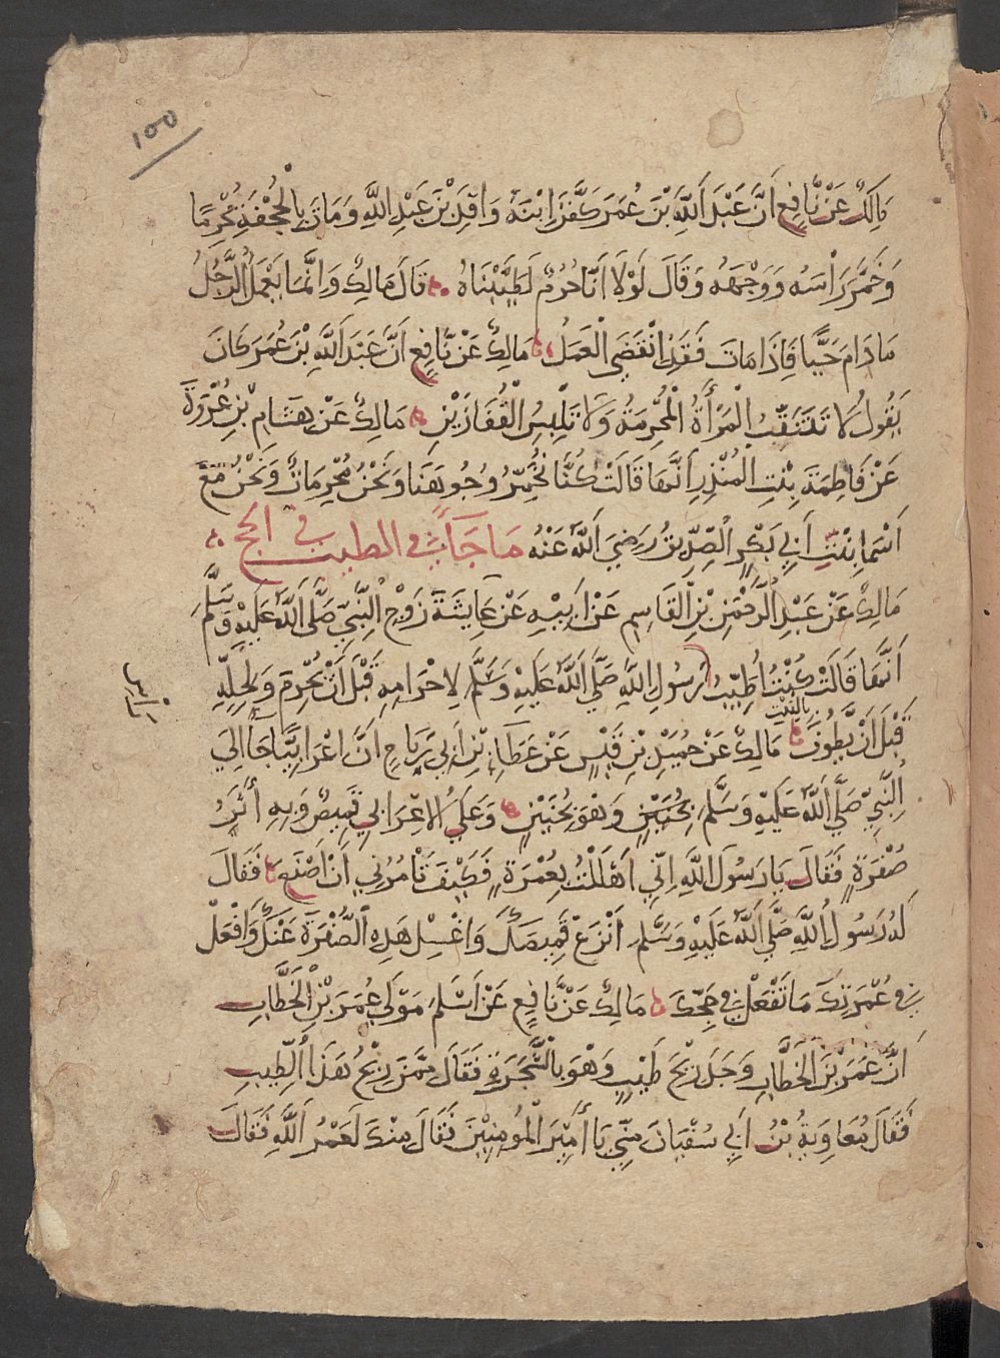 ١٥٥
مَالِكٌ عَنْ نَّافِعٍ أَنَّ عَبْدَ اللَّهِ بْنَ عُمَرَ كَفَّنَ ابْنَهُ وَاقِدَ بْنَ عَبْدِ اللَّهِ وَمَاتَ بِالْجُحْفَةِ مُحْرِمًا
وَخَمَّرَ رَأْسَهُ وَوَجْهَهُ وَقَالَ لَوْلَا أَنَّا حُرُمٌ لَطَيَّبْنَاهُ قَالَ مَالِكٌ وَإِنَّمَا يَعْمَلُ الرَّجُلُ
مَا دَامَ حَيًّا فَإِذَا مَاتَ فَقَدِ انْقَضَى الْعَمَلُ مَالِكٌ عَنْ نَّافِعٍ أَنَّ عَبْدَ اللَّهِ بْنَ عُمَرَ كَانَ
يَقُولُ لَا تَنْتَقِبُ الْمَرْأَةُ الْمُحْرِمَةُ وَلَا تَلْبِسُ الْقُفَّازَيْنِ مَالِكٌ عَنْ هِشَامِ بْنِ عُرْوَةَ
عَنْ فَاطِمَةَ بِنْتِ الْمُنْذِرِ أَنَّهَا قَالَتْ كُنَّا نُخَمِّرُ وُجُوهَنَا وَنَحْنُ مُحْرِمَاتٌ وَنَحْنُ مَعَ
أَسْمَا بِنْتِ أَبِي بَكْرٍ الصِّدِّيقِ رَضِيَ اللَّهُ عَنْهُ مَا جَاءَ فِي الطيب في الحج
مَالِكٌ عَنْ عَبْدِ الرَّحْمَنِ بْنِ الْقَاسِمِ عَنْ أَبِيهِ عَنْ عَائِشَةَ زَوْجِ النَّبِيِّ صَلَّى اللَّهُ عَلَيْهِ وَسَلَّمَ
أَنَّهَا قَالَتْ كُنْتُ أُطَيِّبُ رَسُولَ اللَّهِ صَلَّى اللَّهُ عَلَيْهِ وَسَلَّمَ لِإِحْرَامِهِ قَبْلَ أَنْ يُحْرِمَ وَلِحِلِّهِ
قَبْلَ أَنْ يَّطُوفَ بِالْبَيْتِ مَالِكٌ عَنْ حُمَيْدِ بْنِ قَيْسٍ عَنْ عَطَاءِ بْنِ أَبِي رَبَاحٍ أَنَّ أَعْرَابِيًّا جَاءَ إِلَى
النَّبِيِّ صَلَّى اللَّهُ عَلَيْهِ وَسَلَّمَ بِحُنَيْنٍ وَهُوَ بِحُنَيْنٍ وَعَلَى الْأَعْرَابِيِّ قَمِيصٌ وَبِهِ أَثَرُ
صُفْرَةٍ فَقَالَ يَا رَسُولَ اللَّهِ إِنِّي أَهْلَلْتُ بِعُمْرَةٍ فَكَيْفَ تَأْمُرُنِي أَنْ أَصْنَعَ فَقَالَ
لَهُ رَسُولُ اللَّهِ صَلَّى اللَّهُ عَلَيْهِ وَسَلَّمَ أَنْزِعْ قَمِيصَكَ وَاغْسِلْ هَذِهِ الصُّفْرَةَ عَنْكَ وَافْعَلْ
فِي عُمْرَتِكَ مَا تَفْعَلُ فِي حَجِّكَ مَالِكٌ عَنْ نَّافِعٍ عَنْ أَسْلَمَ مَوْلَى عُمَرَ بْنِ الْخَطَّابِ
أَنَّ عُمَرَ بْنَ الْخَطَّابِ وَجَدَ رِيْحَ طَيْبٍ وَهْوَ بِالشَّجَرَةِ فَقَالَ مِمَّنْ رِيْحُ هَذَا الطِّيبِ
فَقَالَ مُعَاوِيَةُ بْنُ أَبِي سُفْيَانَ مِنِّي يَا أَمِيْرَ الْمُؤْمِنِيْنَ فَقَالَ مِنْكَ لَعَمْرُ اللَّهِ فَقَالَ